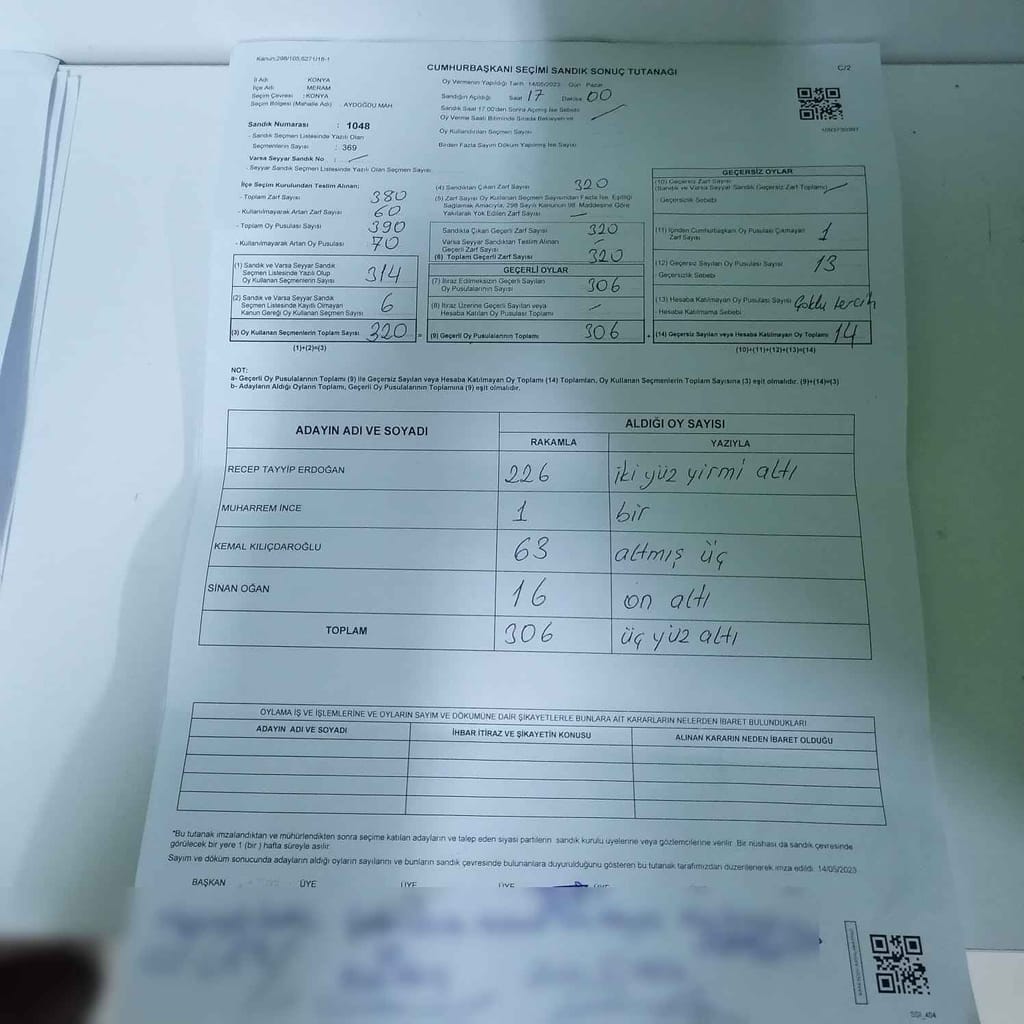 Kanun:298/105,6271/18-1
CUMHURBAŞKANI SEÇİMİ SANDIK SONUÇ TUTANAĞI
C/2
İl Adı : KONYA
İlçe Adı : MERAM
Seçim Çevresi : KONYA
Seçim Bölgesi (Mahalle Adı) : AYDOĞDU MAH
Sandık Numarası : 1048
- Sandık Seçmen Listesinde Yazılı Olan
Seçmenlerin Sayısı : 369
Varsa Seyyar Sandık No :
- Seyyar Sandık Seçmen Listesinde Yazılı Olan Seçmen Sayısı
Oy Vermenin Yapıldığı Tarih 14/05/2023 Gün Pazar
Sandığın Açıldığı Saat 17 Dakika 00
Sandık Saat 17.00'den Sonra Açılmış İse Sebebi
Oy Verme Saati Bitiminde Sırada Bekleyen ve
Oy Kullandırılan Seçmen Sayısı
Birden Fazla Sayım Döküm Yapılmış İse Sayısı
İlçe Seçim Kurulundan Teslim Alınan:
- Toplam Zarf Sayısı 380
- Kullanılmayarak Artan Zarf Sayısı 60
- Toplam Oy Pusulası Sayısı 390
- Kullanılmayarak Artan Oy Pusulası 70
(1) Sandık ve Varsa Seyyar Sandık
Seçmen Listesinde Yazılı Olup
Oy Kullanan Seçmenlerin Sayısı 314
(2) Sandık ve Varsa Seyyar Sandık
Seçmen Listesinde Kayıtlı Olmayan
Kanun Gereği Oy Kullanan Seçmen Sayısı 6
(3) Oy Kullanan Seçmenlerin Toplam Sayısı 320 =
(1)+(2)=(3)
(4) Sandıktan Çıkan Zarf Sayısı 320
(5) Zarf Sayısı Oy Kullanan Seçmen Sayısından Fazla İse, Eşitliği
Sağlamak Amacıyla, 298 Sayılı Kanunun 98. Maddesine Göre
Yakılarak Yok Edilen Zarf Sayısı
Sandıkta Çıkan Geçerli Zarf Sayısı 320
Varsa Seyyar Sandıktan Teslim Alınan
Geçerli Zarf Sayısı
(6) Toplam Geçerli Zarf Sayısı 320
GEÇERLİ OYLAR
(7) İtiraz Edilmeksizin Geçerli Sayılan
Oy Pusulalarının Sayısı 306
(8) İtiraz Üzerine Geçerli Sayılan veya
Hesaba Katılan Oy Pusulası Toplamı
(9) Geçerli Oy Pusulalarının Toplamı 306 +
GEÇERSİZ OYLAR
(10) Geçersiz Zarf Sayısı
(Sandık ve Varsa Seyyar Sandık Geçersiz Zarf Toplamı)
- Geçersizlik Sebebi
(11) İçinden Cumhurbaşkanı Oy Pusulası Çıkmayan
Zarf Sayısı 1
(12) Geçersiz Sayılan Oy Pusulası Sayısı 13
- Geçersizlik Sebebi
(13) Hesaba Katılmayan Oy Pusulası Sayısı Çoklu tercih
- Hesaba Katılmama Sebebi
(14) Geçersiz Sayılan veya Hesaba Katılmayan Oy Toplamı 14
(10)+(11)+(12)+(13)=(14)
NOT:
a- Geçerli Oy Pusulalarının Toplamı (9) ile Geçersiz Sayılan veya Hesaba Katılmayan Oy Toplamı (14) Toplamları, Oy Kullanan Seçmenlerin Toplam Sayısına (3) eşit olmalıdır. (9)+(14)=(3)
b- Adayların Aldığı Oyların Toplamı, Geçerli Oy Pusulalarının Toplamına (9) eşit olmalıdır.
ADAYIN ADI VE SOYADI
ALDIĞI OY SAYISI
RAKAMLA YAZIYLA
RECEP TAYYİP ERDOĞAN 226 iki yüz yirmi altı
MUHARREM İNCE 1 bir
KEMAL KILIÇDAROĞLU 63 altmış üç
SİNAN OĞAN 16 on altı
TOPLAM 306 üç yüz altı
OYLAMA İŞ VE İŞLEMLERİNE VE OYLARIN SAYIM VE DÖKÜMÜNE DAİR ŞİKAYETLERLE BUNLARA AİT KARARLARIN NELERDEN İBARET BULUNDUKLARI
ADAYIN ADI VE SOYADI İHBAR İTİRAZ VE ŞİKAYETİN KONUSU ALINAN KARARIN NEDEN İBARET OLDUĞU
*Bu tutanak imzalandıktan ve mühürlendikten sonra seçime katılan adayların ve talep eden siyasi partilerin sandık kurulu üyelerine veya gözlemcilerine verilir. Bir nüshası da sandık çevresinde
görülecek bir yere 1 (bir) hafta süreyle asılır.
Sayım ve döküm sonucunda adayların aldığı oyların sayılarını ve bunların sandık çevresinde bulunanlara duyurulduğunu gösteren bu tutanak tarafımızdan düzenlenerek imza edildi. 14/05/2023
BAŞKAN ÜYE ÜYE ÜYE ÜYE